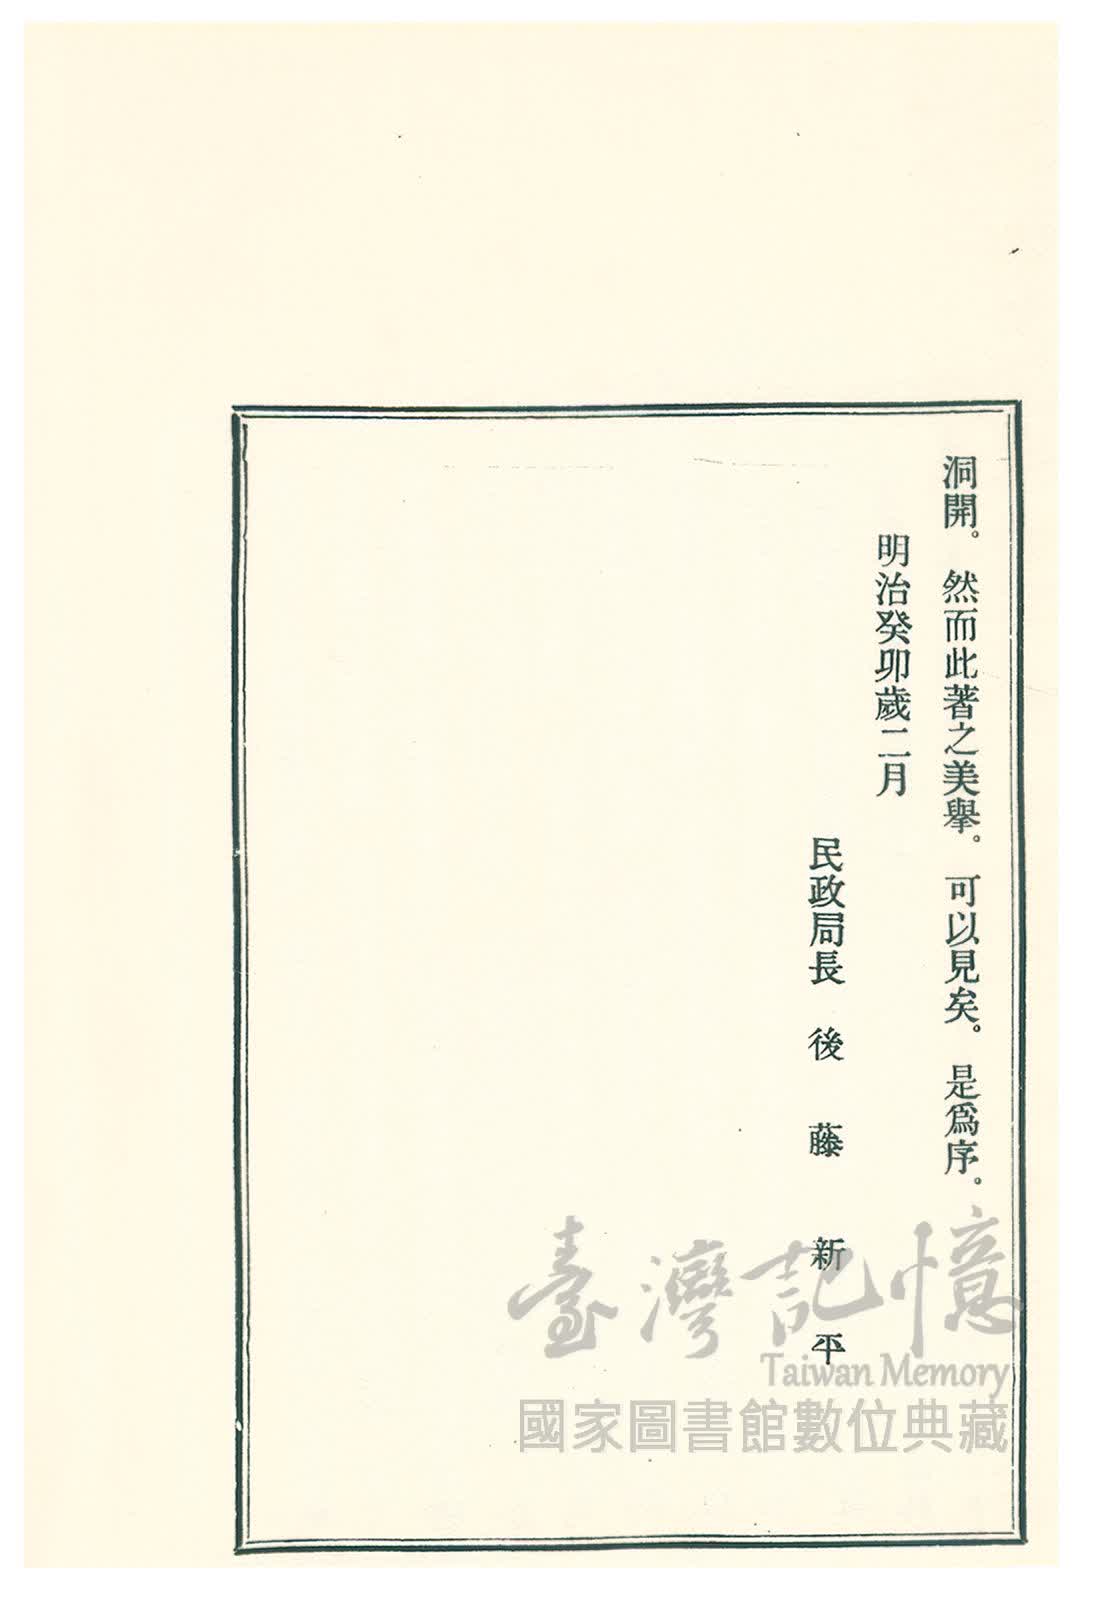 洞開。然而此著之美擧。可以見矣。是爲序。
明治癸卯歲二月
民政局長 後藤新平
臺灣記憶
Taiwan Memory
國家圖書館數位典藏